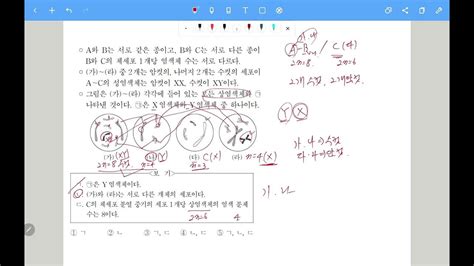 ○ A와 B는 서로 같은 종이고, B와 C는 서로 다른 종이
B와 C의 체세포 1개당 염색체 수는 서로 다르다.
○ (가)~(라) 중 2개는 암컷의, 나머지 2개는 수컷의 세포이
A~C의 성염색체는 암컷이 XX, 수컷이 XY이다.
○ 그림은 (가)~(라) 각각에 들어 있는 모든 상염색체와 ㉠
나타낸 것이다. ㉠은 X 염색체와 Y 염색체 중 하나이다.
(가) (나) (다) (라)
(XY) C(X) n=4(X)
2n=8 n=4 n=3
<보 기>
ㄱ. ㉠은 Y 염색체이다.
(가)와 (라)는 서로 다른 개체의 세포이다.
ㄷ. C의 체세포 분열 중기의 세포 1개당 상염색체의 염색 분체
수는 8이다.
2n=6 4
① ㄱ ② ㄴ ③ ㄷ ④ ㄱ, ㄴ ⑤ ㄴ, ㄷ
가, 나
A-B / C (다)
2n=8 2n=6
2개 수컷, 2개 암컷
Y X
가, 나 수컷
다, 라 암컷
가, 나